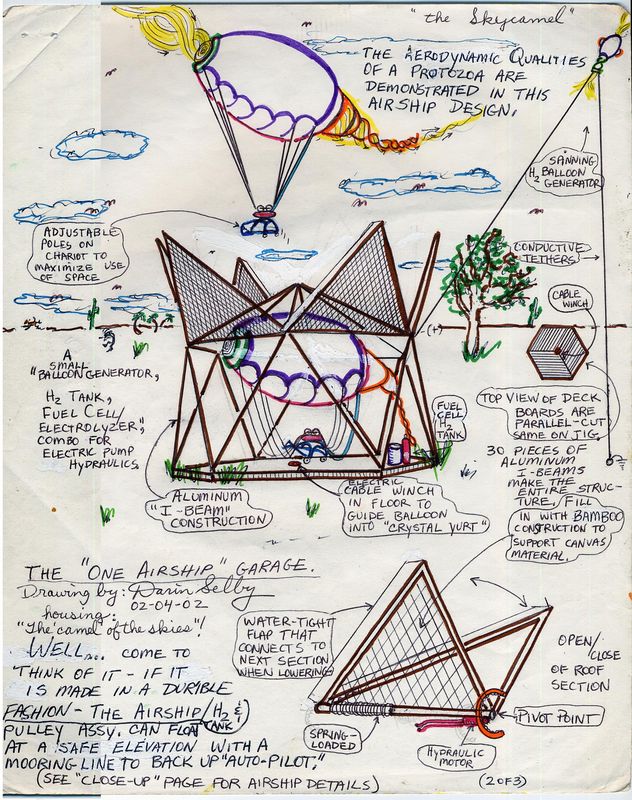 "the Skycamel"
THE AERODYNAMIC QUALITIES
OF A PROTOZOA ARE
DEMONSTRATED IN THIS
AIRSHIP DESIGN.
SPINNING
H2 BALLOON
GENERATOR
ADJUSTABLE
POLES ON
CHARIOT TO
MAXIMIZE USE
OF SPACE
CONDUCTIVE
TETHERS
CABLE
WINCH
(+)
A
SMALL
"BALLOON GENERATOR,
H2 TANK,
FUEL CELL/
ELECTROLYZER,"
COMBO FOR
ELECTRIC PUMP
HYDRAULICS.
FUEL
CELL
H2
TANK
TOP VIEW OF DECK
BOARDS ARE
PARALLEL-CUT
SAME ON JIG.
30 PIECES OF
ALUMINUM
I-BEAMS
MAKE THE
ENTIRE STRUC-
TURE, / FILL
IN WITH BAMBOO
CONSTRUCTION TO
SUPPORT CANVAS
MATERIAL.
ALUMINUM
"I-BEAM"
CONSTRUCTION
ELECTRIC
CABLE WINCH
IN FLOOR TO
GUIDE BALLOON
INTO "CRYSTAL YURT"
THE "ONE AIRSHIP" GARAGE.
Drawing by: Darin Selby
02-04-02
housing:
"The camel of the skies"!
WELL... COME TO
THINK OF IT - IF IT
IS MADE IN A DURIBLE
FASHION - THE AIRSHIP/H2 &
TANK
PULLEY ASSY. CAN FLOAT
AT A SAFE ELEVATION WITH A
MOORING LINE TO BACK UP "AUTO-PILOT."
(SEE "CLOSE-UP" PAGE FOR AIRSHIP DETAILS)
WATER-TIGHT
FLAP THAT
CONNECTS TO
NEXT SECTION
WHEN LOWERING
OPEN/
CLOSE
OF ROOF
SECTION
PIVOT POINT
SPRING-
LOADED
HYDRAULIC
MOTOR
(2 OF 3)